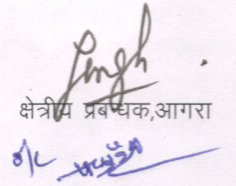 Singh
क्षेत्रीय प्रबन्धक,आगरा
o/c